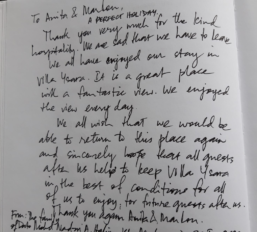 To Anita & Manlon,
A PERFECT HOLIDAY,
Thank you very much for the kind
hospitality. We are sad that we have to leave
We all have enjoyed our stay in
Villa Ysora. It is a great place
with a fantastic view. We enjoyed
the view every day
We all wish that we would be
able to return to this place again
and sincerely hope that all guests
after us help to keep Villa Ysora
in the best of conditions for all
of us to enjoy, for future guests after us.
Thank you again Anita & Manlon.
From: The